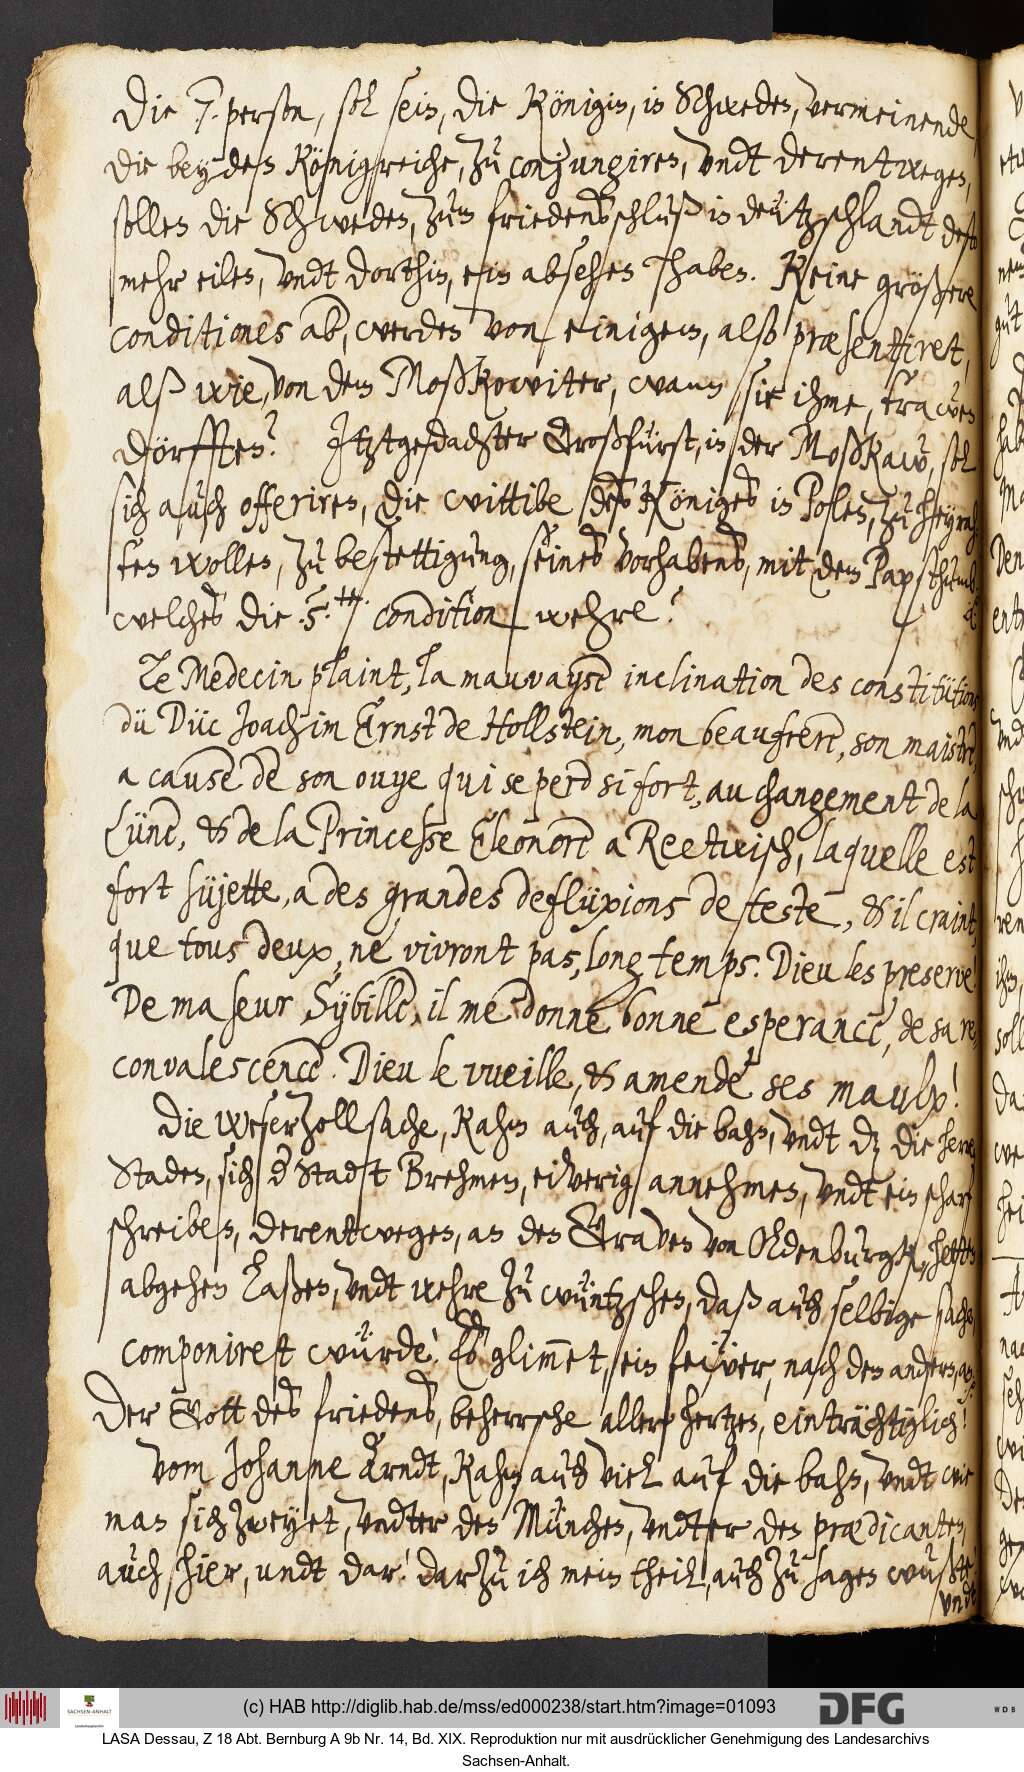 Die 7. person, sol sein, die Königin, in Schweden, vermeinende,
die beyden Königreiche, zu conjungiren, undt derentwegen,
sollen die Schweden, zum friedensschluß in deützschlandt desto
mehr eilen, undt dorthin, ein absehen haben. Keine größere
conditiones aber, werden von einigem, also præsentiret,
alß wie, von dem Moßkowiter, wann sie ihme, trawen
dörfften? Itztgedachter Großfürst, in der Moßkaw, sol
sich auch offeriren, die wittibe des Königes in Polen, zu heyrah-
ten wollen, zu bestettigung, seines vorhabens, mit dem Papsthumb,
welches die .5.te. condition wehre?
Le Medecin plaint, la mauvayse inclination des constitütions
dü Düc Joachim Ernst de Hollstein, mon beaufrere, son maistre,
a cause de son ouye qui se perd si fort, au changement de la
Lüne, & de la Princesse Eleonore a Reetwisch, laquelle est
fort süjette, a des grandes deflüxions de teste, & il craint,
que tous deux, ne vivront pas, long temps. Dieu les preserve!
De ma seur Sybille, il me donne bonne esperance, de sa re-
convalescence. Dieu le vueille, & amende ses maulx!
Die Weserzollsache, kahm auch, auf die bahn, undt dz die herren
Staden, sich der Stadt Brehmen, eiverig annehmen, undt ein scharf
schreiben, derentwegen, an den Graven von Oldenburgk, hetten
abgehen laßen, undt wehre zu wüntzschen, daß auch selbige sache,
componiret würde! Es glimmet, ein feüer, nach dem andern, an.
Der Gott des friedens, beherrsche aller hertzen, einträchtiglich!
Vom Johanne Arndt, kahm auch viel auf die bahn, undt wie
man sich zweyet, undter den München, undter den prædicanten,
auch hier, undt dar! darzu ich mein theil, auch zu sagen wußte
undt
(c) HAB http://diglib.hab.de/mss/ed000238/start.htm?image=01093
SACHSEN-ANHALT
DFG
WDB
LASA Dessau, Z 18 Abt. Bernburg A 9b Nr. 14, Bd. XIX. Reproduktion nur mit ausdrücklicher Genehmigung des Landesarchivs
Sachsen-Anhalt.